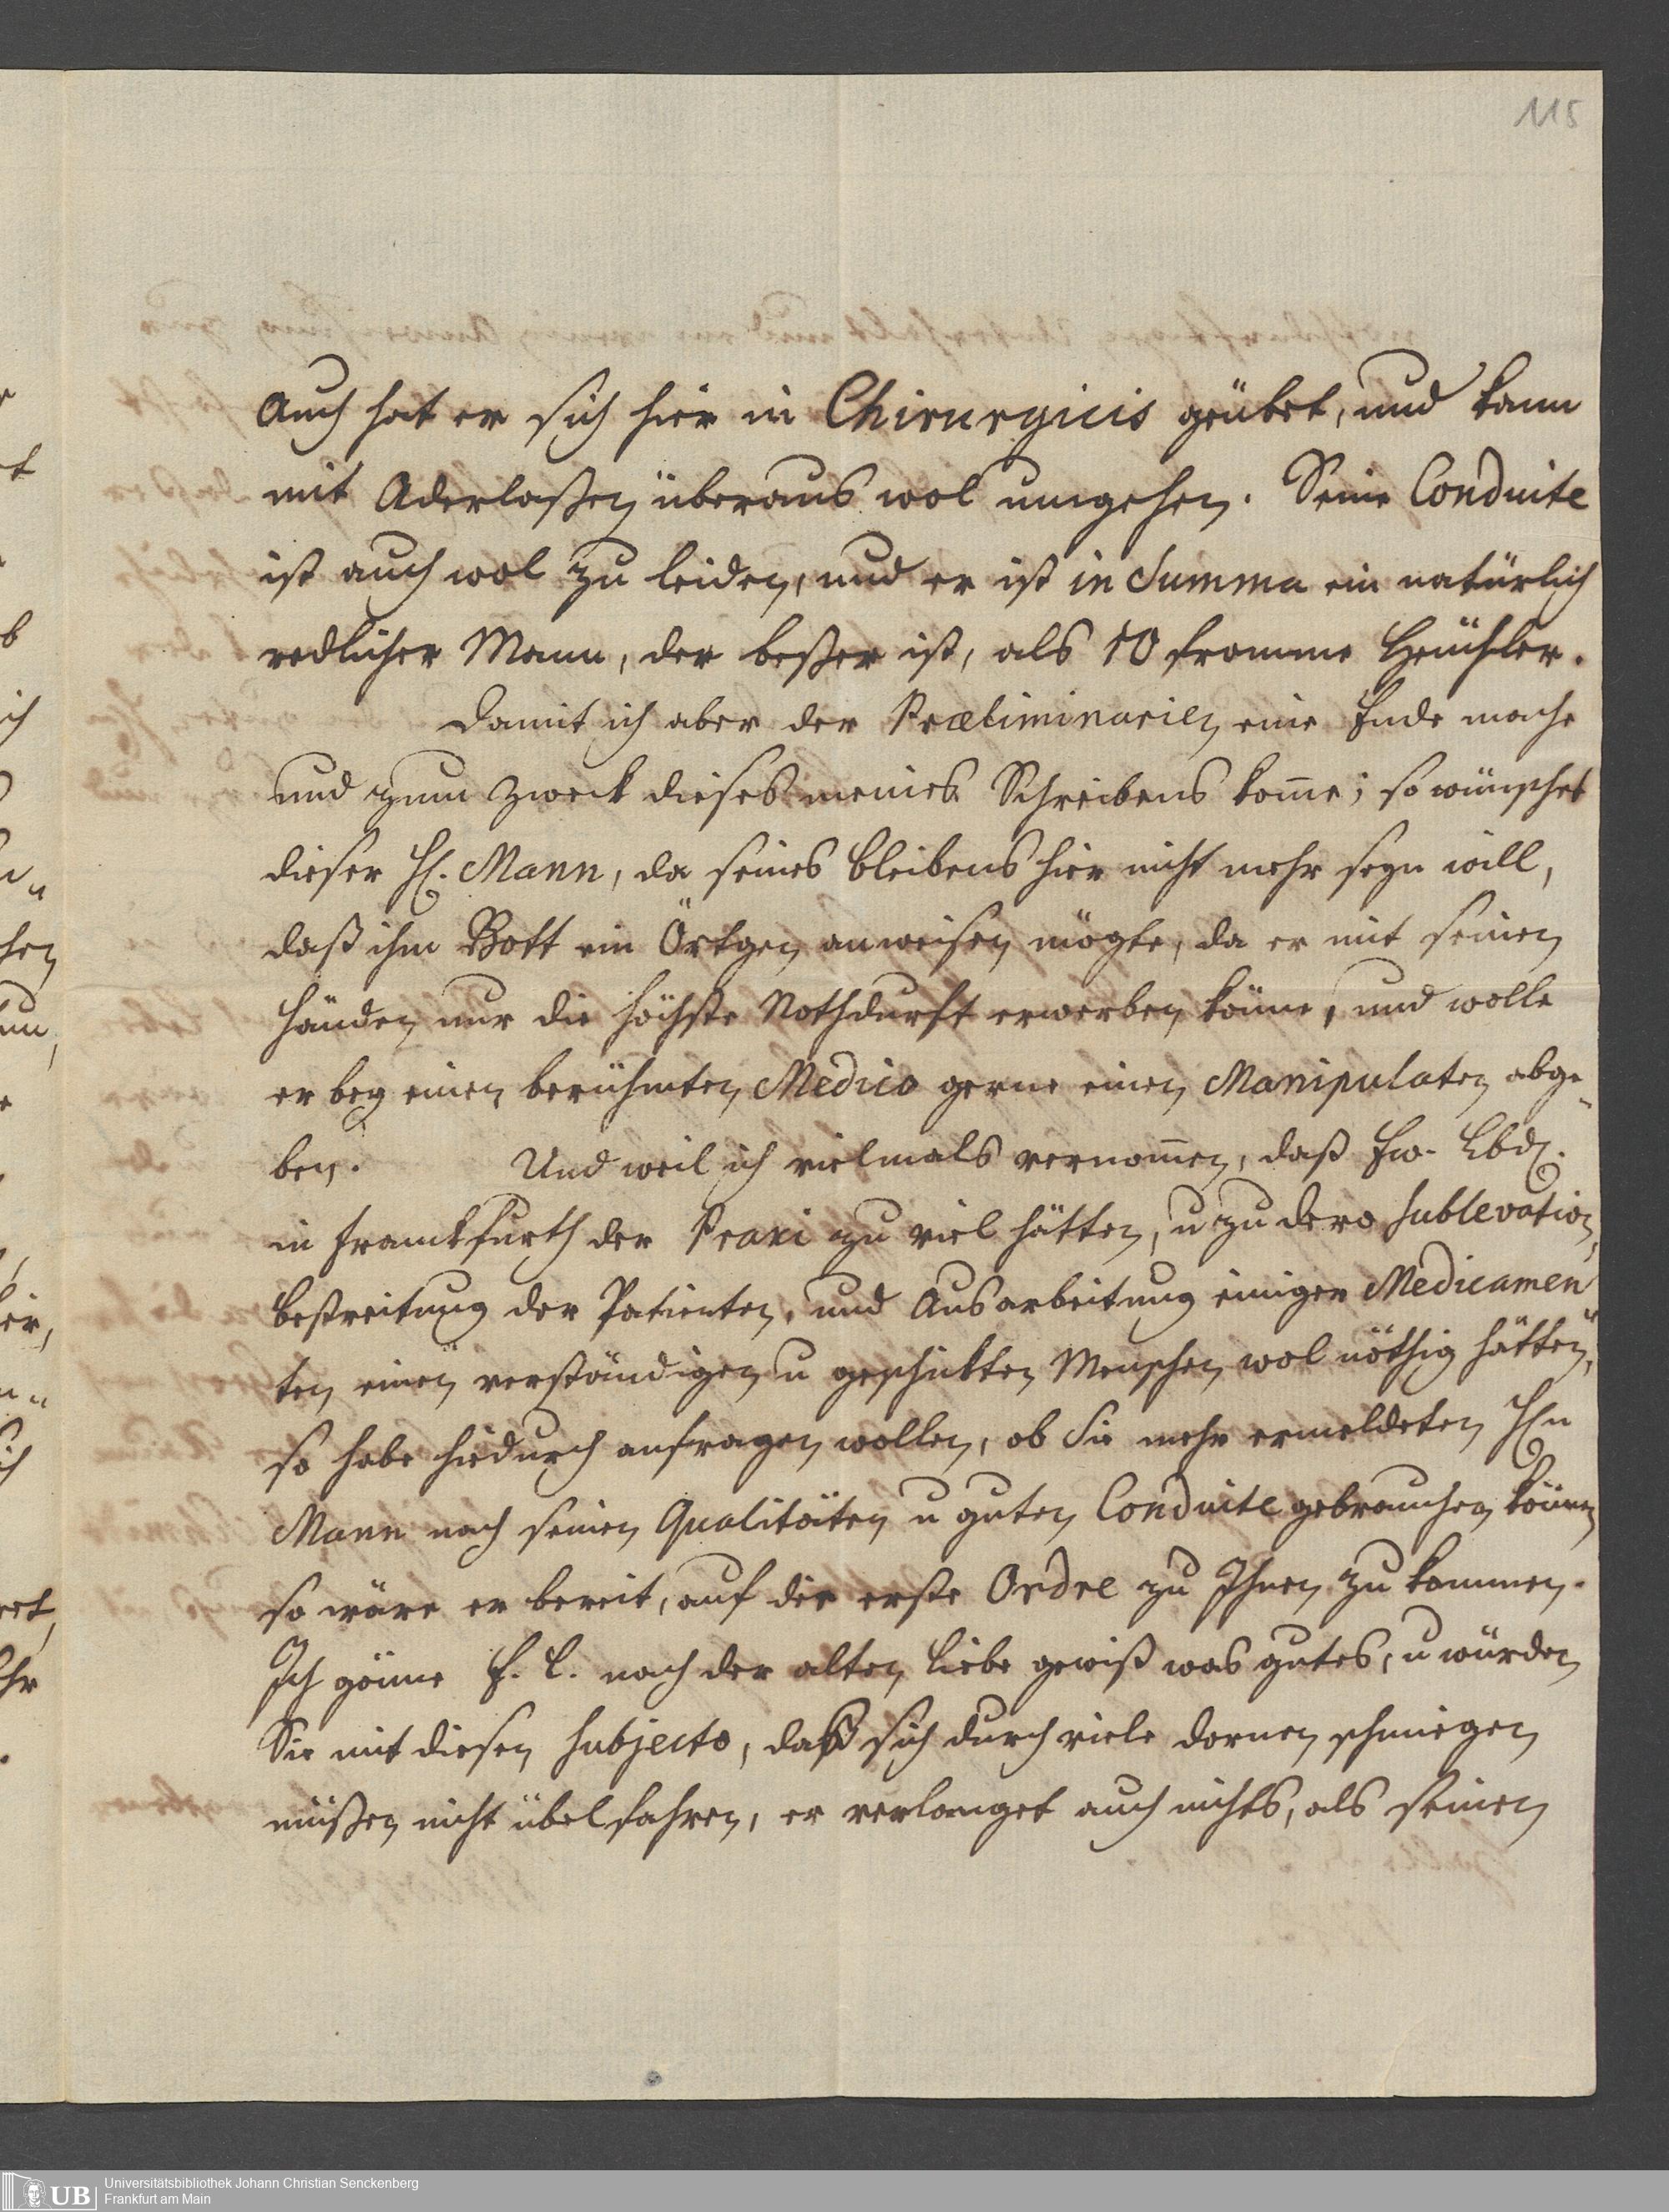 115
Auch hat er sich hier in Chirurgicis geübet, und kann
mit Aderlaßen überaus wol umgehen. Seine Conduite
ist auch wol zu leiden, und er ist in Summa ein natürlich
redlicher Mann, der beßer ist, als 10 fromme Heuchler.
Damit ich aber der Præliminarien eine Ende mache
und zum Zweck dieses meines Schreibens kom̄e; so wünschet
dieser H. Mann, da seines bleibens hier nicht mehr seyn will,
daß ihm Gott ein Örtgen anweisen mögte, da er mit seinen
Händen nur die höchste Nothdurft erwerben könne, und wolle
er bey einen berühmten Medico gerne einen Manipulaten abge-
ben. Und weil ich vielmals vernom̄en, daß Ew. Lbd.
in Franckfurth der Praxi zu viel hätten, u zu dero Sublevation,
bestreitung der Patienten, und Ausarbeitung einiger Medicamen-
ten einen verständigen u geschickten Menschen wol nöthig hätten,
so habe hiedurch anfragen wollen, ob Sie mehr ermeldeten Hn
Mann nach seinen Qualitäten u guten Conduite gebrauchen können
so wäre er bereit, auf die erste Ordre zu Ihnen zu kommen.
Ich gönne E. L. nach der alten Liebe gewiß was gutes, u würden
Sie mit diesen Subjecto, daß sich durch viele dornen schmiegen
müßen nicht übel fahren, er verlanget auch nichts, als seinen
UB
Universitätsbibliothek Johann Christian Senckenberg
Frankfurt am Main